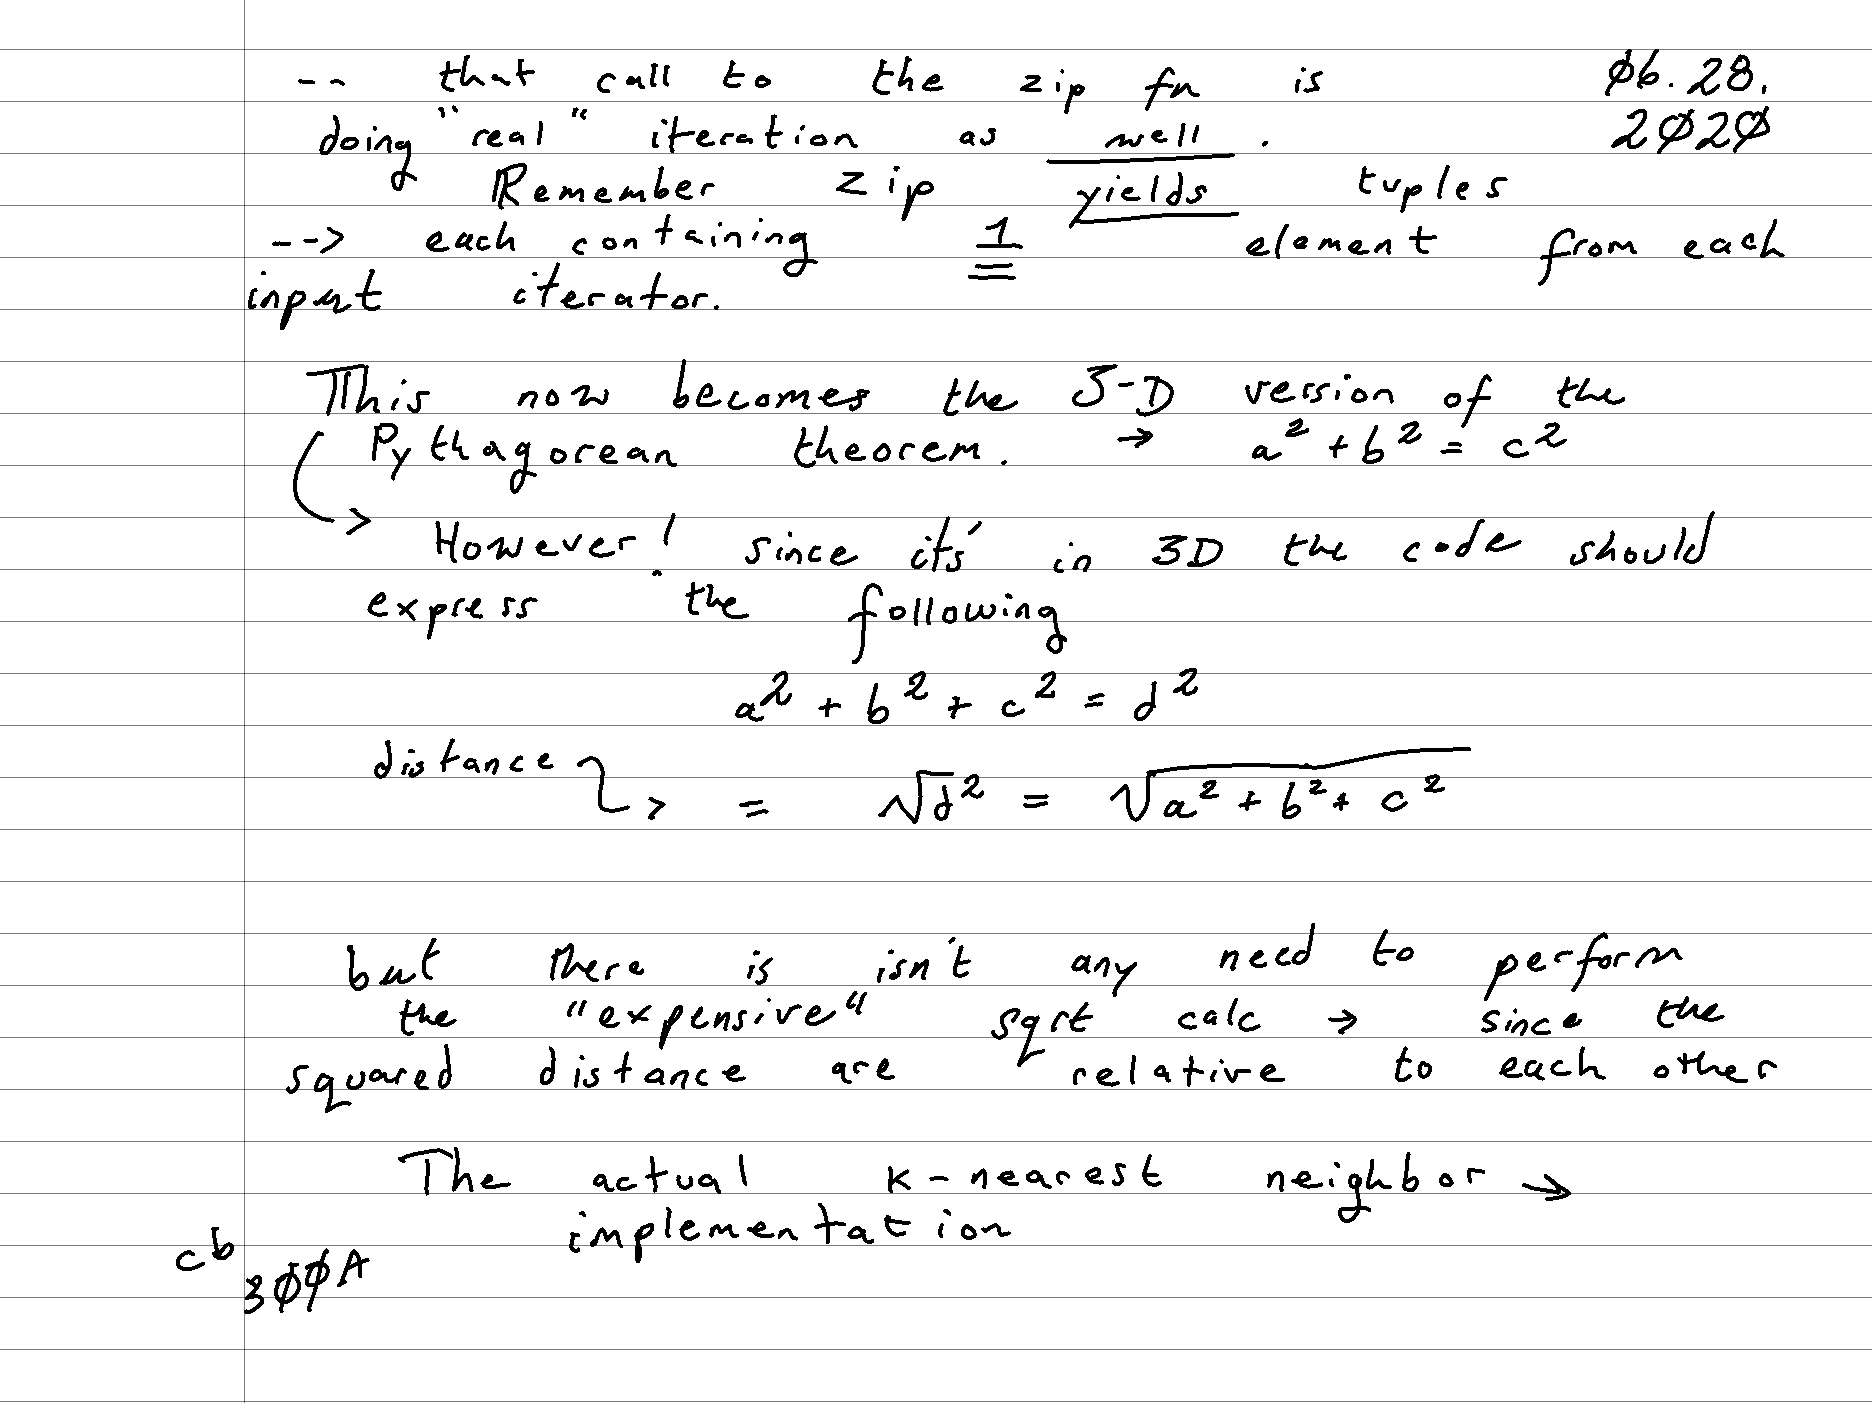 -- that call to the zip fn is ø6.28.
doing "real" iteration as well. 2ø2ø
Remember zip yields tuples
--> each containing 1 element from each
input iterator.
This now becomes the 3-D version of the
Pythagorean theorem. → a² + b² = c²
However! since its' in 3D the code should
express the following
a² + b² + c² = d²
distance → = √d² = √a² + b² + c²
but there is isn't any need to perform
the "expensive" sqrt calc → since the
squared distance are relative to each other
The actual k-nearest neighbor →
implementation
cb
3øøA